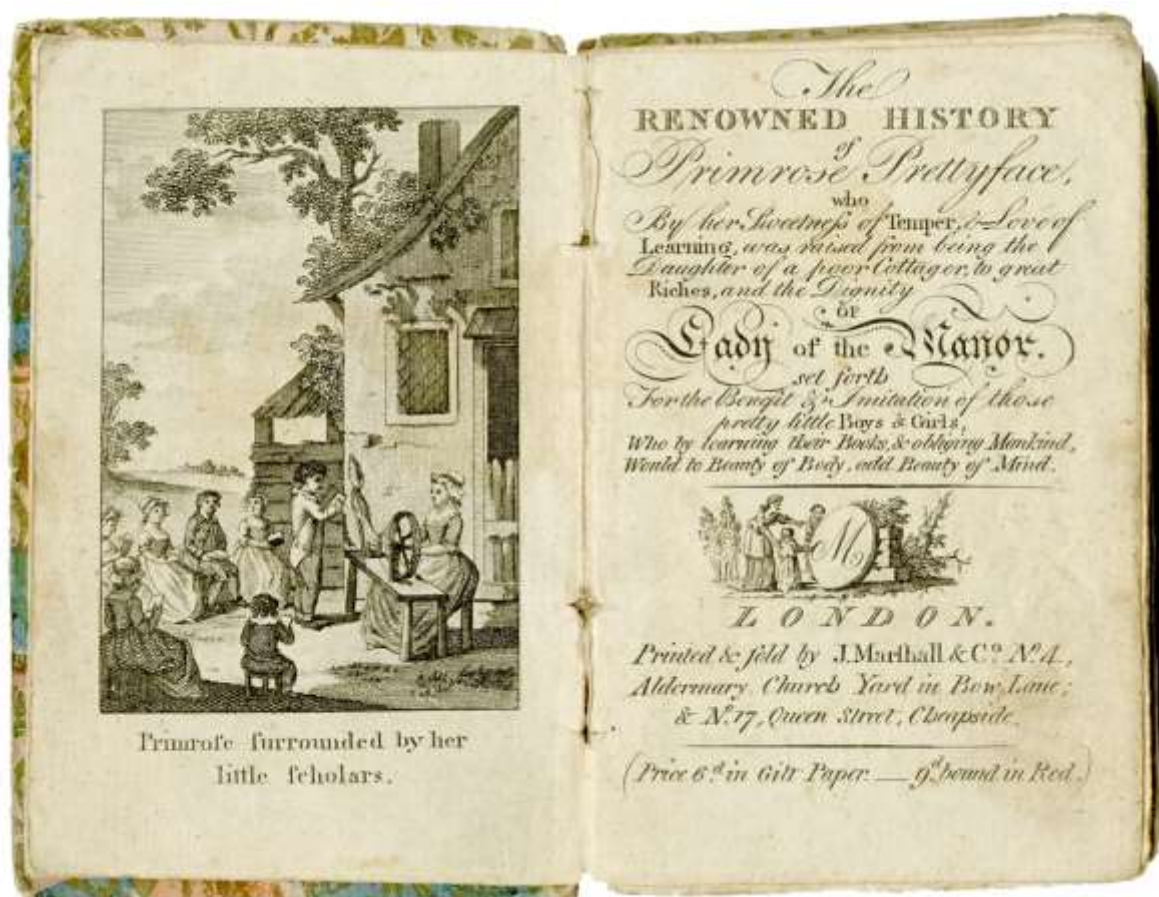 Primroſe ſurrounded by her
little ſcholars.
The
RENOWNED HISTORY
of
Primrose Prettyface,
who
By her Sweetneſs of Temper, & Love of
Learning, was raised from being the
Daughter of a poor Cottager, to great
Riches, and the Dignity
of
Lady of the Manor.
set forth
For the Benefit & Imitation of those
pretty little Boys & Girls,
Who by learning their Books, & obliging Mankind,
Would to Beauty of Body, add Beauty of Mind.
M
LONDON.
Printed & ſold by J. Marſhall & Co. No. 4,
Aldermary Church Yard in Bow Lane;
& No. 17, Queen Street, Cheapside.
(Price 6d. in Gilt Paper — 9d. bound in Red.)